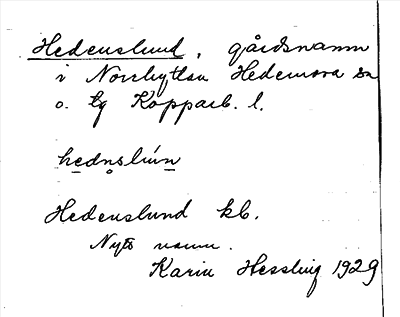 Hedenslund, gårdsnamn
i Norrhyttan Hedemora sn
o. tg Kopparb. l.
hednslúnn
Hedenslund kb.
Nytt namn.
Karin Hessling 1929